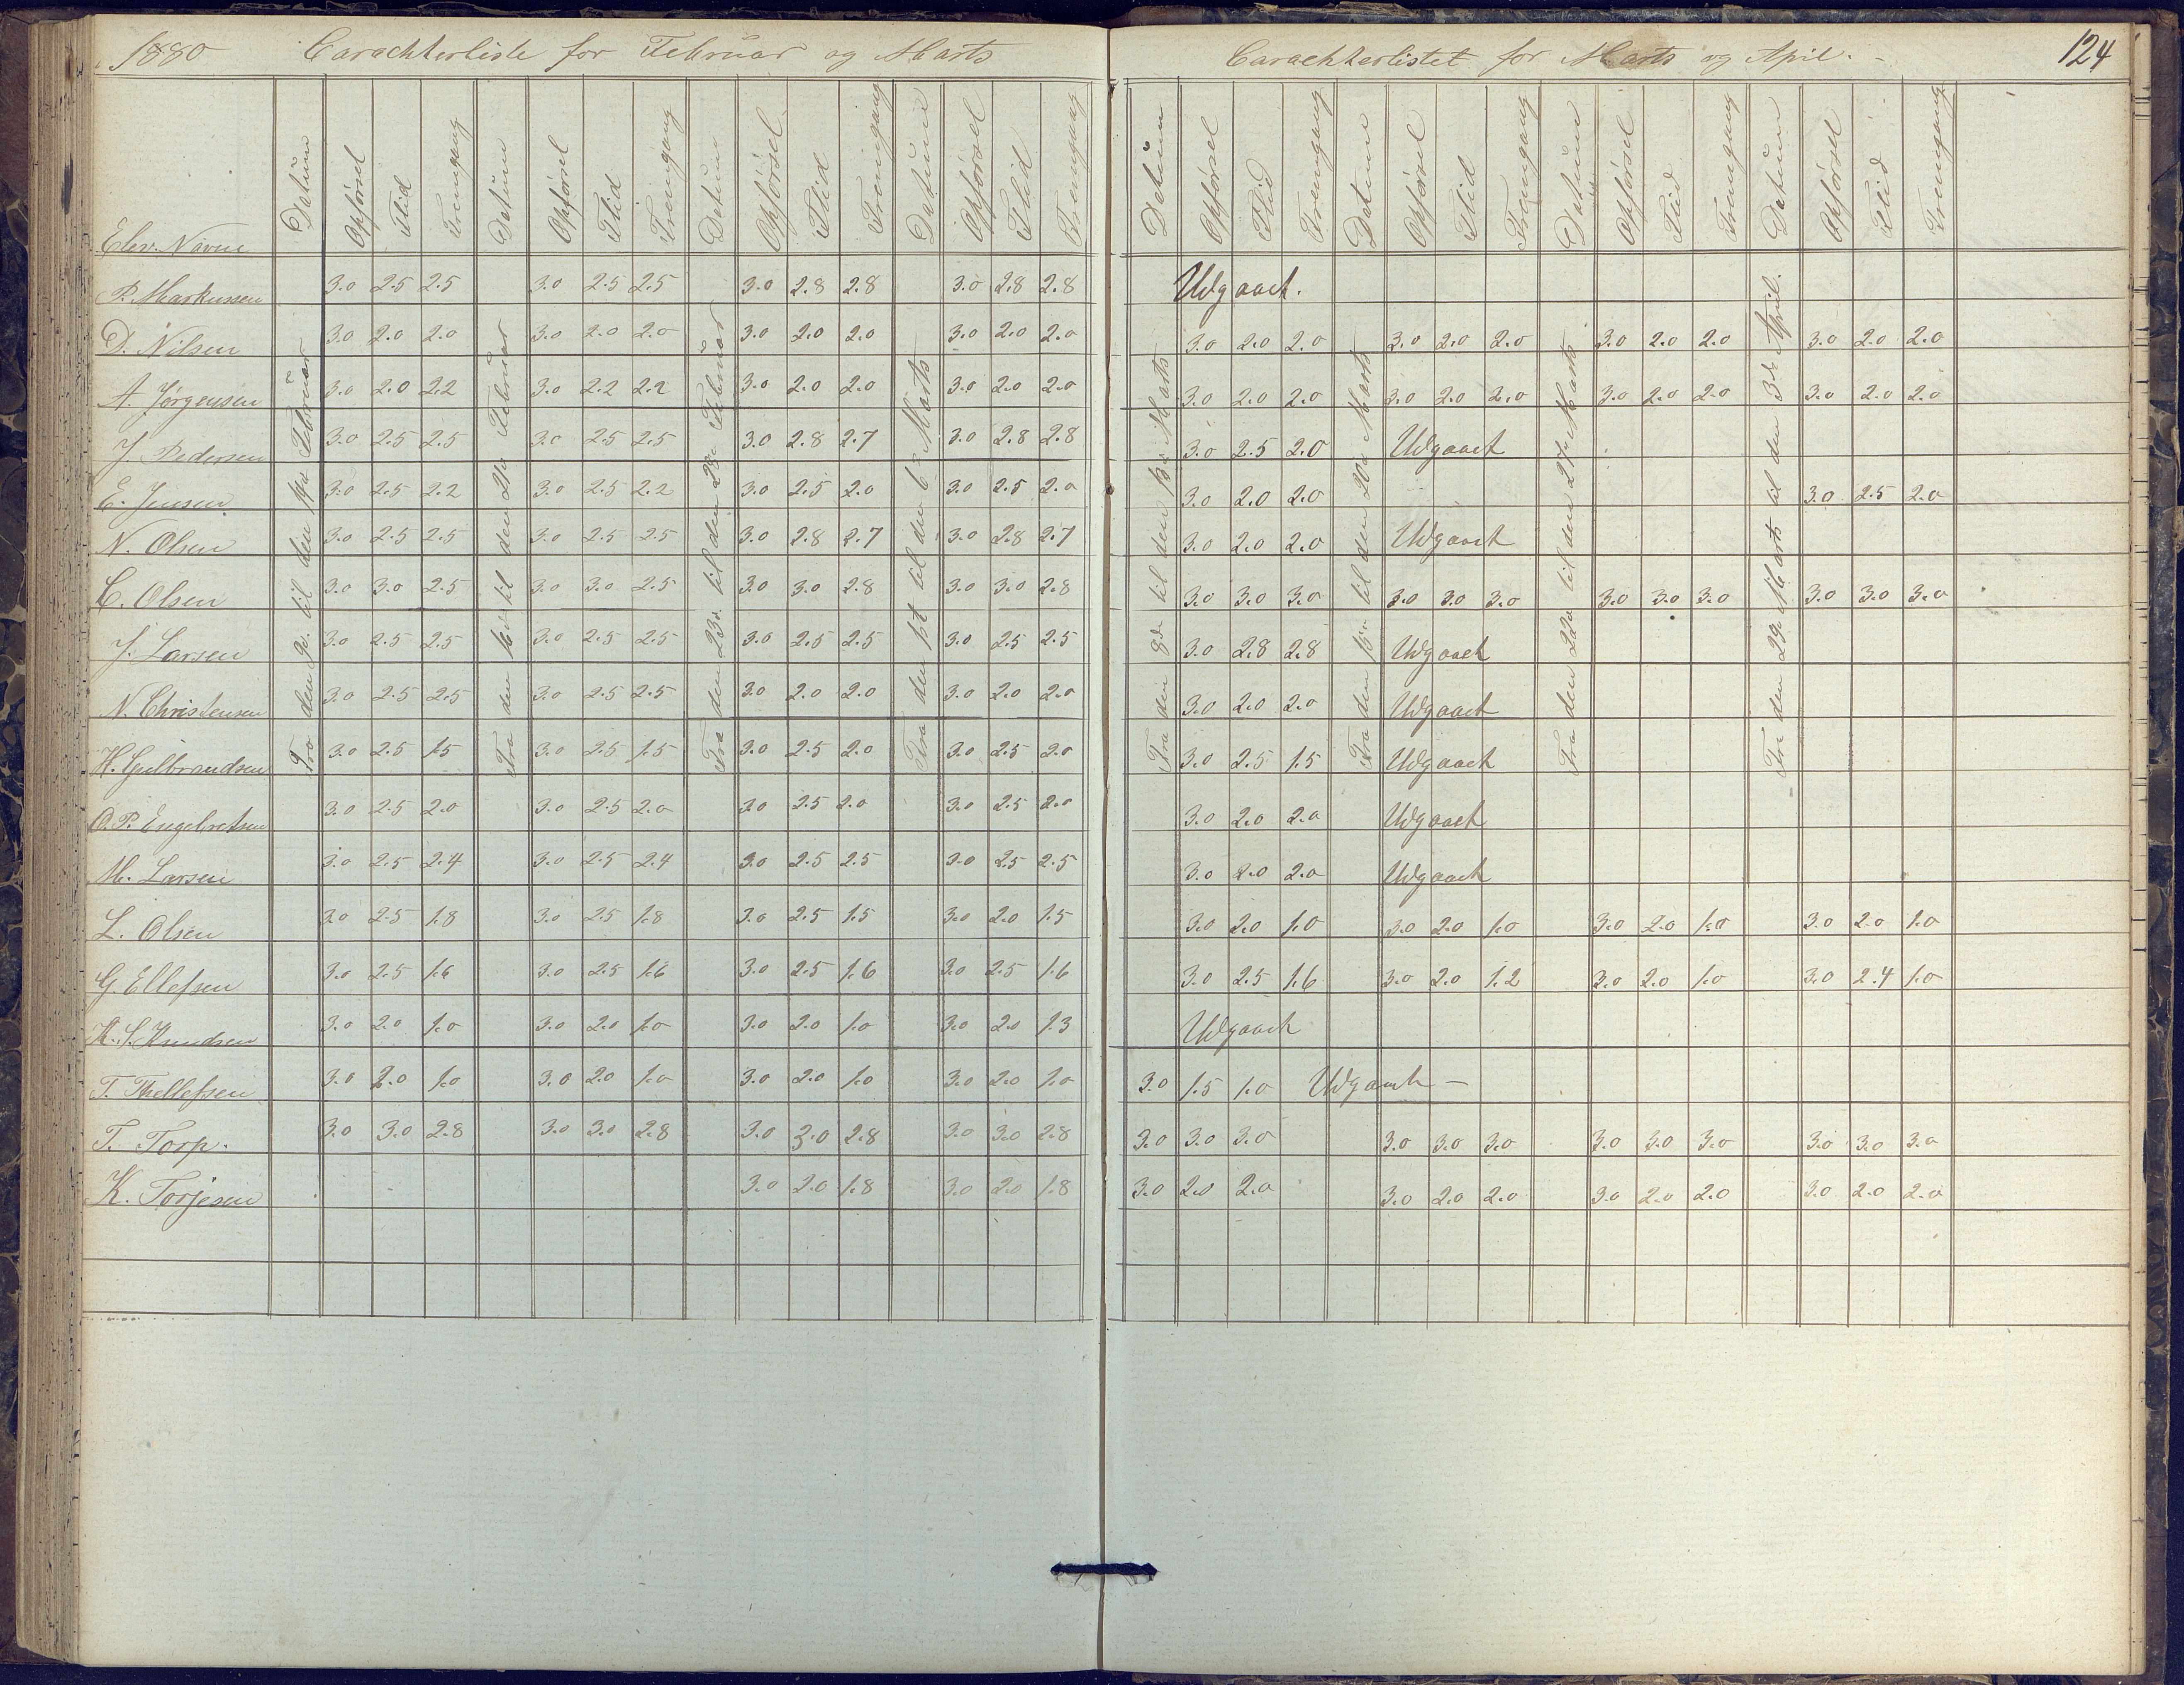 1880 Carachterliste for Februar og Marts
Elev. Navne Datum Opførsel Flid Fremgang Datum Opførsel Flid Fremgang Datum Opførsel Flid Fremgang Datum Opførsel Flid Fremgang
Fra den 9de til den 14de Februar
Fra den 16de til den 21de Februar
Fra den 23de til den 28de Februar
Fra den 1st til den 6te Marts
P. Markussen 3.0 2.5 2.5 3.0 2.5 2.5 3.0 2.8 2.8 3.0 2.8 2.8
D. Nilsen 3.0 2.0 2.0 3.0 2.0 2.0 3.0 2.0 2.0 3.0 2.0 2.0
A. Jørgensen 3.0 2.0 2.2 3.0 2.2 2.2 3.0 2.0 2.0 3.0 2.0 2.0
J. Pedersen 3.0 2.5 2.5 3.0 2.5 2.5 3.0 2.8 2.7 3.0 2.8 2.8
E. Jensen 3.0 2.5 2.2 3.0 2.5 2.2 3.0 2.5 2.0 3.0 2.5 2.0
N. Olsen 3.0 2.5 2.5 3.0 2.5 2.5 3.0 2.8 2.7 3.0 2.8 2.7
C. Olsen 3.0 3.0 2.5 3.0 3.0 2.5 3.0 3.0 2.8 3.0 3.0 2.8
J. Larsen 3.0 2.5 2.5 3.0 2.5 2.5 3.0 2.5 2.5 3.0 2.5 2.5
N. Christensen 3.0 2.5 2.5 3.0 2.5 2.5 3.0 2.0 2.0 3.0 2.0 2.0
H. Gulbrandsen 3.0 2.5 1.5 3.0 2.5 1.5 3.0 2.5 2.0 3.0 2.5 2.0
O. P. Engebretsen 3.0 2.5 2.0 3.0 2.5 2.0 3.0 2.5 2.0 3.0 2.5 2.0
M. Larsen 3.0 2.5 2.4 3.0 2.5 2.4 3.0 2.5 2.5 3.0 2.5 2.5
L. Olsen 3.0 2.5 1.8 3.0 2.5 1.8 3.0 2.5 1.5 3.0 2.0 1.5
G. Ellefsen 3.0 2.5 1.6 3.0 2.5 1.6 3.0 2.5 1.6 3.0 2.5 1.6
K. S. Knudsen 3.0 2.0 1.0 3.0 2.0 1.0 3.0 2.0 1.0 3.0 2.0 1.3
T. Thellefsen 3.0 2.0 1.0 3.0 2.0 1.0 3.0 2.0 1.0 3.0 2.0 1.0
T. Torp. 3.0 3.0 2.8 3.0 3.0 2.8 3.0 3.0 2.8 3.0 3.0 2.8
K. Torjesen 3.0 2.0 1.8 3.0 2.0 1.8
Carachterlistet for Marts og April. - 124
Datum Opførsel Flid Fremgang Datum Opførsel Flid Fremgang Datum Opførsel Flid Fremgang Datum Opførsel Flid Fremgang
Fra den 8de til den 13de Marts
Fra den 15de til den 20de Marts
Fra den 22de til den 27de Marts
Fra den 29de Marts til den 3de April.
Udgaaet.
3.0 2.0 2.0 3.0 2.0 2.0 3.0 2.0 2.0 3.0 2.0 2.0
3.0 2.0 2.0 3.0 2.0 2.0 3.0 2.0 2.0 3.0 2.0 2.0
3.0 2.5 2.0 Udgaaet
3.0 2.0 2.0 3.0 2.5 2.0
3.0 2.0 2.0 Udgaaet
3.0 3.0 3.0 3.0 3.0 3.0 3.0 3.0 3.0 3.0 3.0 3.0
3.0 2.8 2.8 Udgaaet
3.0 2.0 2.0 Udgaaet
3.0 2.5 1.5 Udgaaet
3.0 2.0 2.0 Udgaaet
3.0 2.0 2.0 Udgaaet
3.0 2.0 1.0 3.0 2.0 1.0 3.0 2.0 1.0 3.0 2.0 1.0
3.0 2.5 1.6 3.0 2.0 1.2 3.0 2.0 1.0 3.0 2.4 1.0
Udgaaet
3.0 1.5 1.0 Udgaaet -
3.0 3.0 3.0 3.0 3.0 3.0 3.0 3.0 3.0 3.0 3.0 3.0
3.0 2.0 2.0 3.0 2.0 2.0 3.0 2.0 2.0 3.0 2.0 2.0